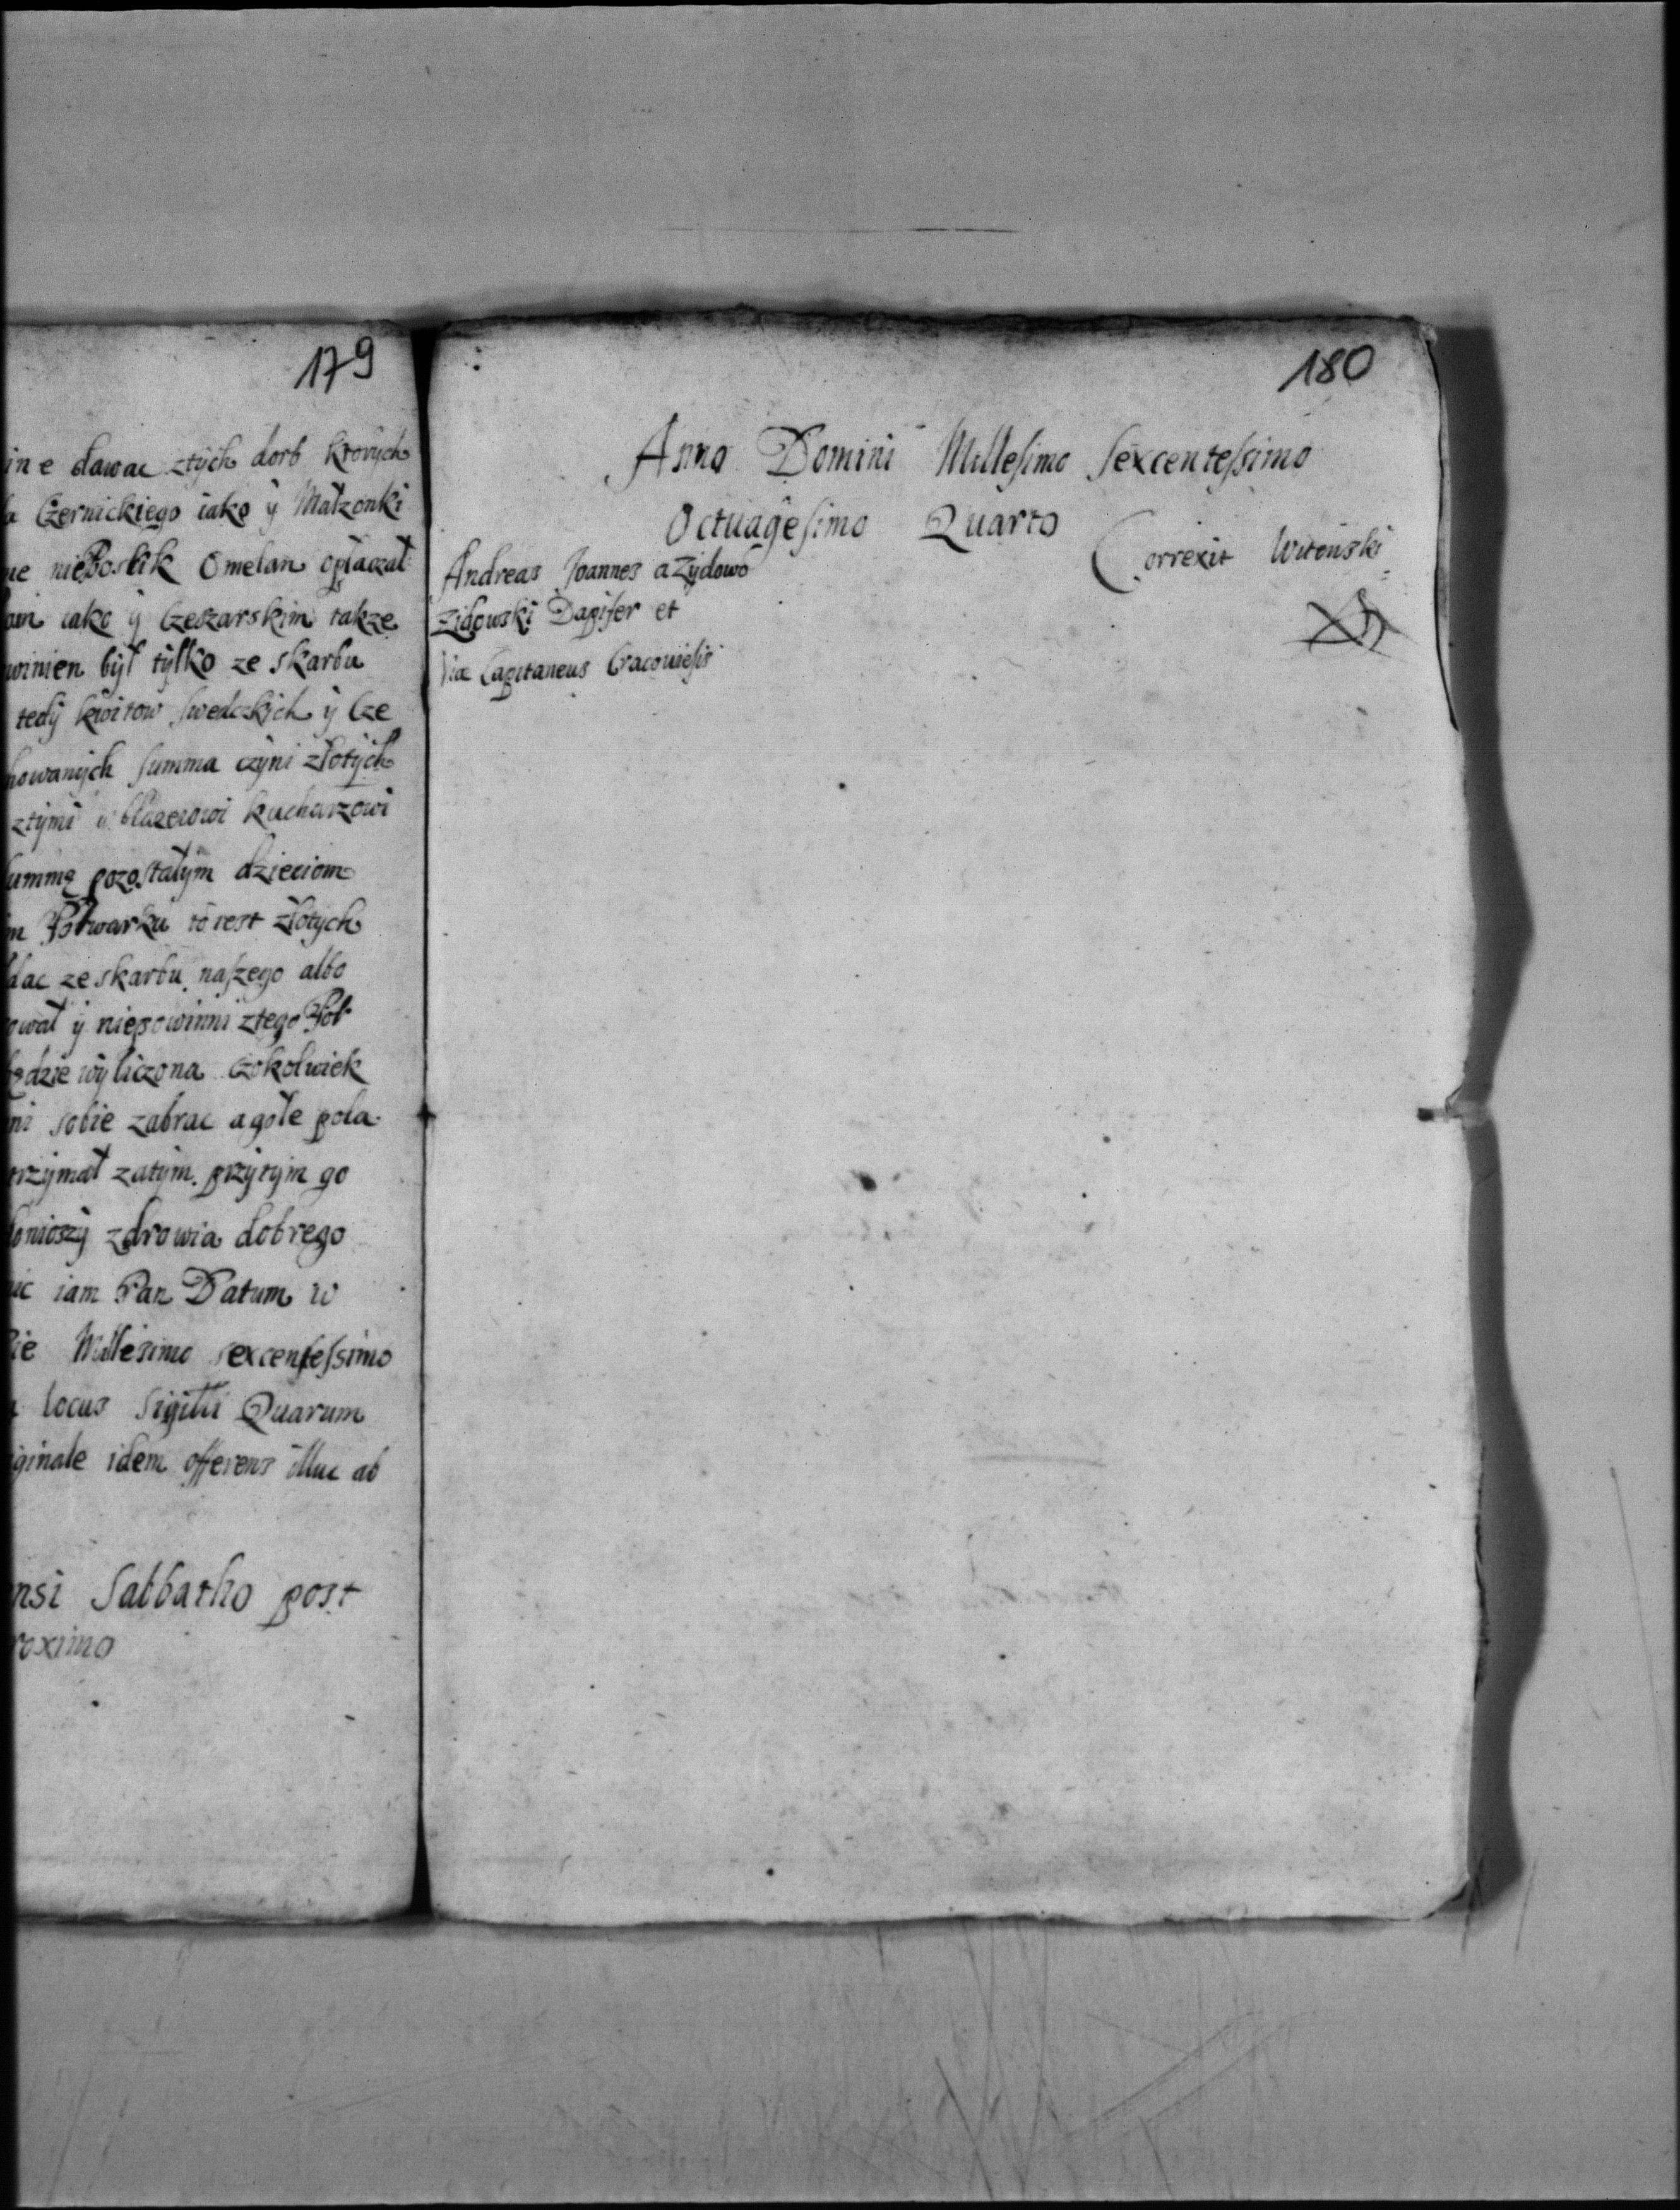 179
ine dawac ztych dorb ktorych
a Czernickiego iako y Małzonki
ne nieboslik Omelan opłaczał
iako y Czeszarskim takze
winien był tylko ze skarbu
tedy kwitow swedczkich y Cze
howanych summa czyni złotych
ztymi kucharzowi
ummę pozostałym dzieciom
m Folwarku to iest złotych
dac ze skarbu naszego albo
ował y niepowinni ztego Fol
ędzie wyliczona czokolwiek
ni sobie zabrac agołe pola
trzymał zatym przytym go
donioszy zdrowia dobrego
ic iam Pan Datum w
Millesimo sexcentessimo
locus Sigilli Quarum
iginale idem offerens illuc ab
nsi Sabbatho post
roximo
180
Anno Domini Millesimo Sexcentessimo
Octuagesimo Quarto
Correxit Witoński
Andreas Joannes a Zydowo
Zidowski Dapifer et
Vice Capitaneus Cracouiesis